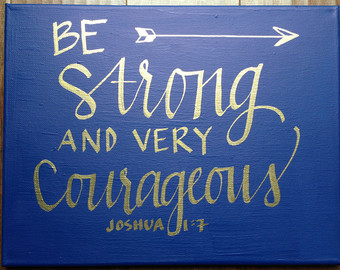 BE
Strong
AND VERY
Courageous
JOSHUA 1:7